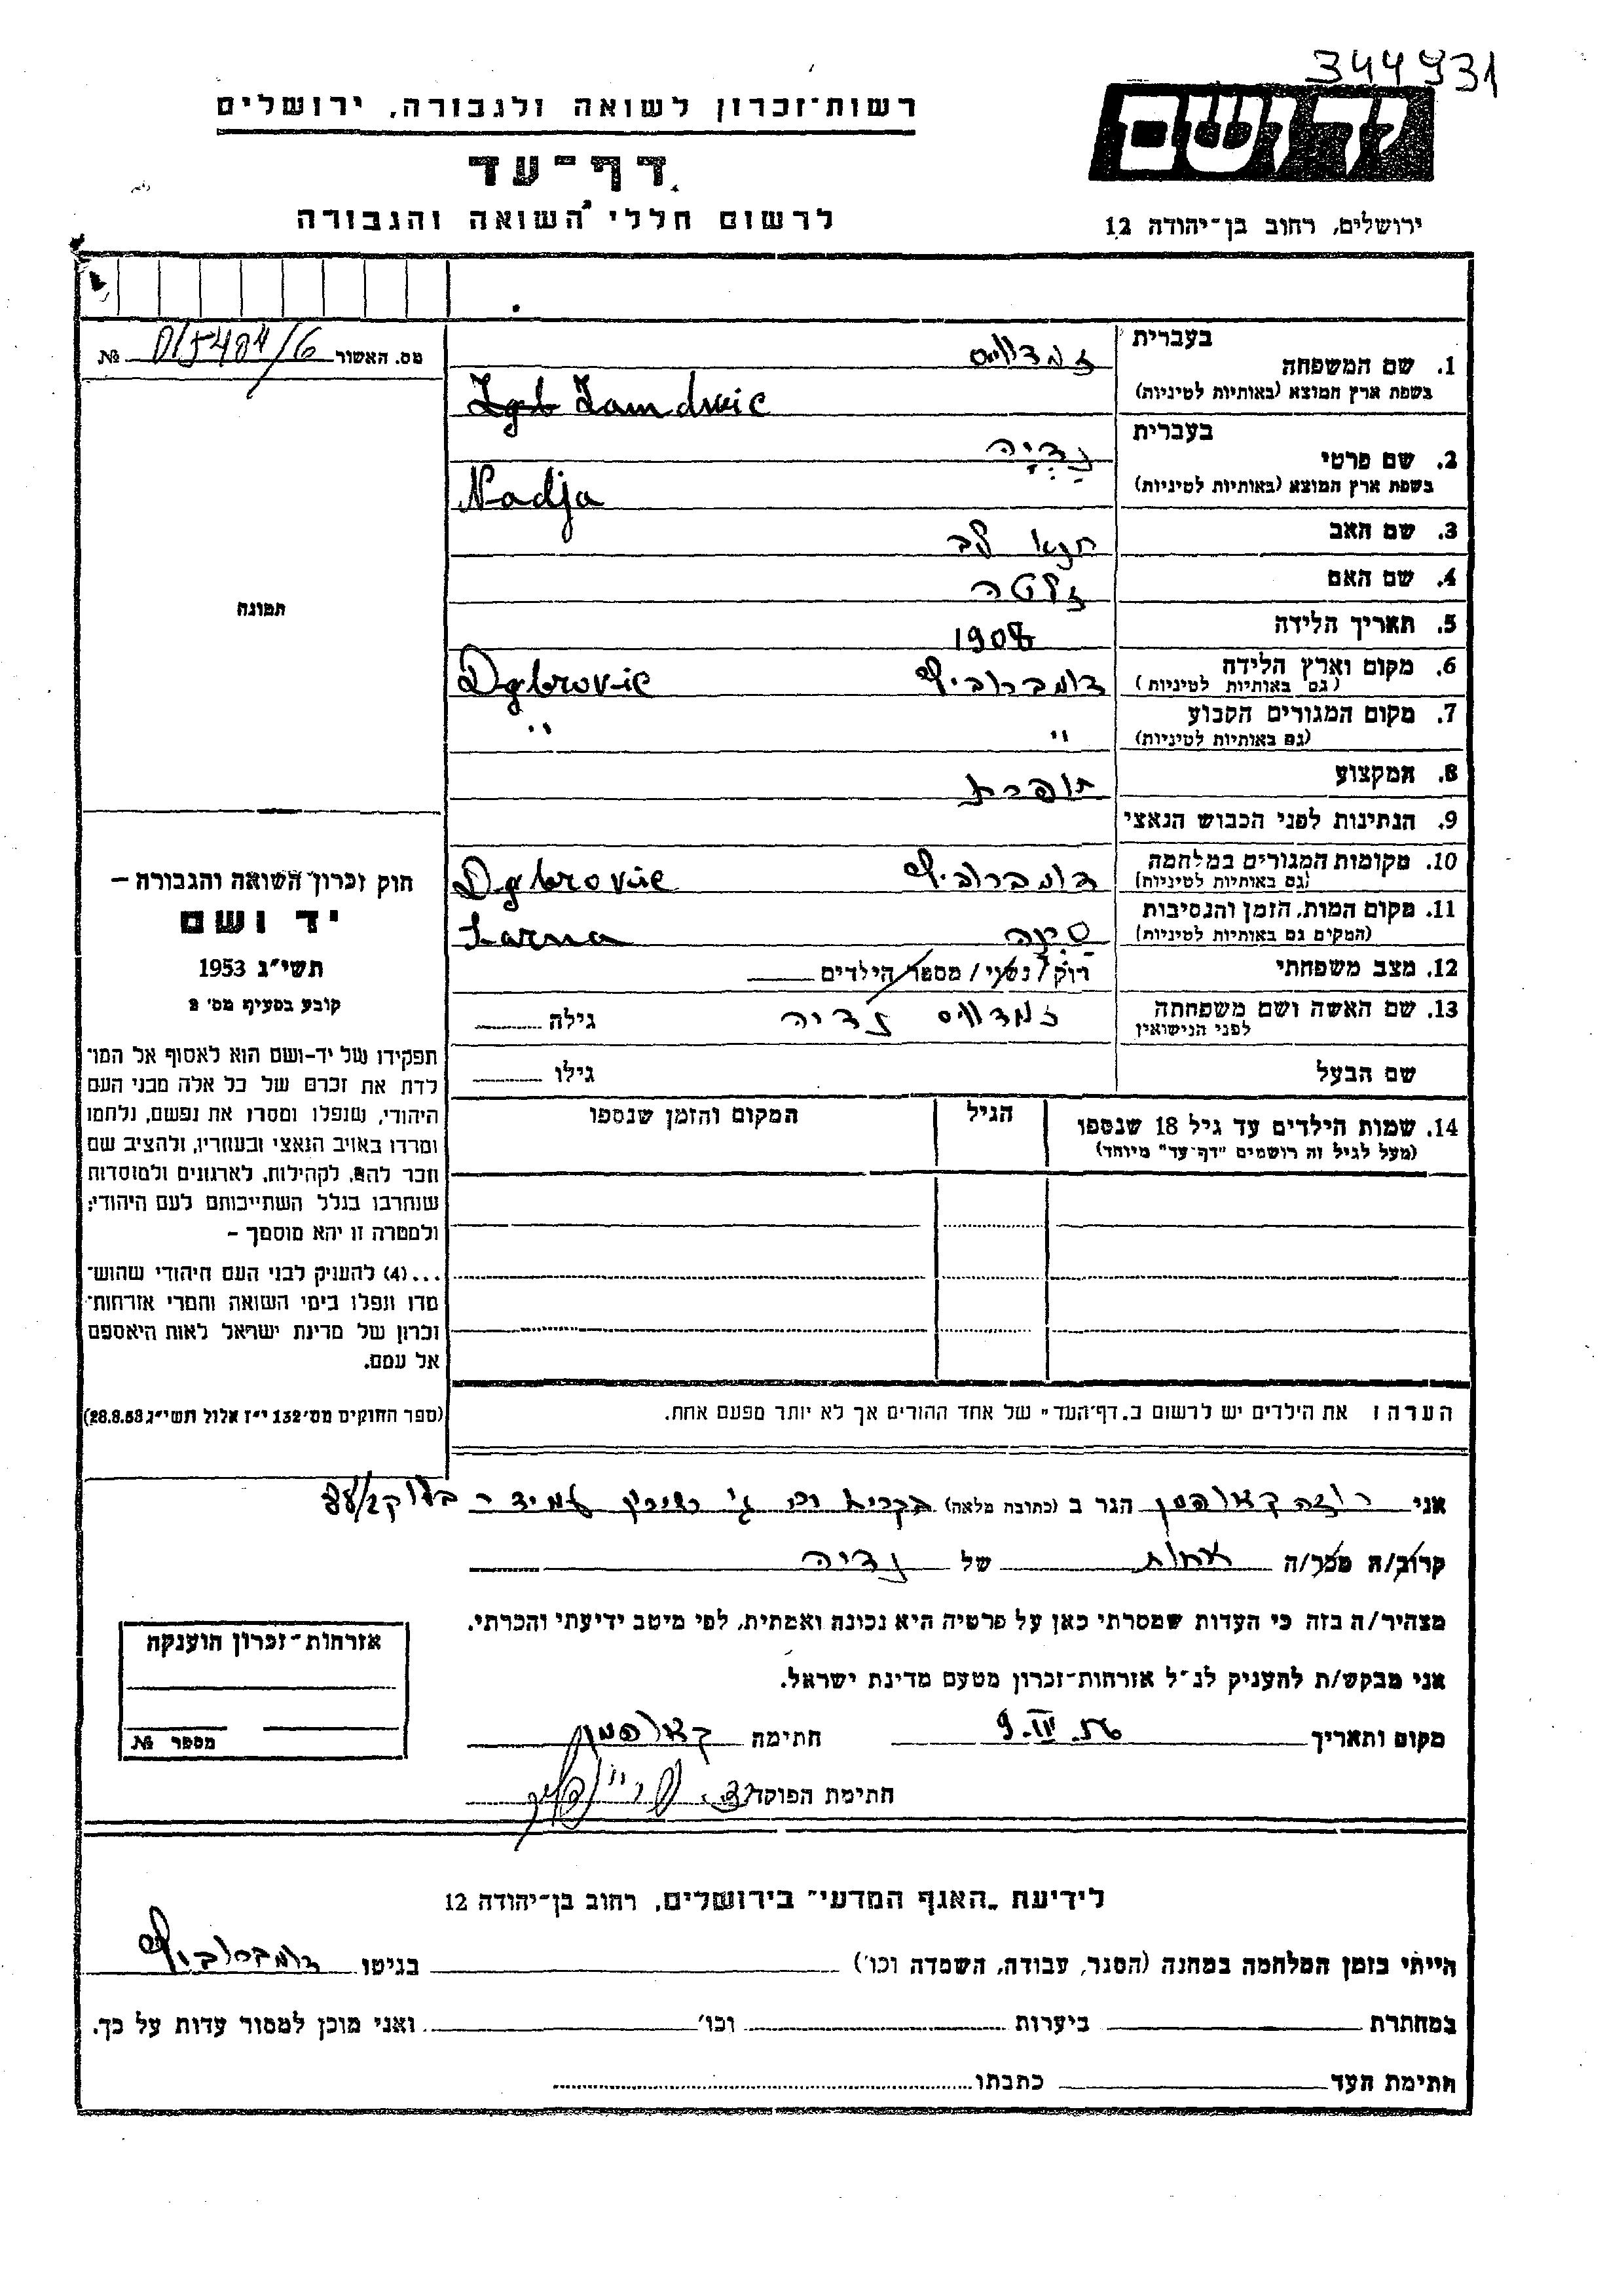 344931
רשות־זכרון לשואה ולגבורה, ירושלים
ידושם
דף־עד
לרשום חללי השואה והגבורה
ירושלים, רחוב בן־יהודה 12
מס. האשור № 015484/6
בעברית
1. שם המשפחה
בשפת ארץ המוצא (באותיות לטיניות) Zamdweic
בעברית
2. שם פרטי נַדְיָה
בשפת ארץ המוצא (באותיות לטיניות) Nadja
3. שם האב לב
4. שם האם זלטה
5. תאריך הלידה 1908
6. מקום וארץ הלידה דומברוביץ Dąbrovic
(גם באותיות לטיניות)
7. מקום המגורים הקבוע " "
(גם באותיות לטיניות)
8. המקצוע תופרת
9. הנתינות לפני הכבוש הנאצי
10. מקומות המגורים במלחמה דומברוביץ Dąbrovic
(גם באותיות לטיניות)
11. מקום המות, הזמן והנסיבות Sarna
(המקום גם באותיות לטיניות)
12. מצב משפחתי רוק/נשוי/מספר הילדים
13. שם האשה ושם משפחתה נדיה גילה
לפני הנישואין
שם הבעל גילו
14. שמות הילדים עד גיל 18 שנספו הגיל המקום והזמן שנספו
(מעל לגיל זה רושמים "דף־עד" מיוחד)
הערה: את הילדים יש לרשום ב„דף־העד" של אחד ההורים אך לא יותר מפעם אחת.
תמונה
חוק זכרון השואה והגבורה –
יד ושם
תשי"ג 1953
קובע בסעיף מס' 2
תפקידו של יד-ושם הוא לאסוף אל המו־
לדת את זכרם של כל אלה מבני העם
היהודי, שנפלו ומסרו את נפשם, נלחמו
ומרדו באויב הנאצי ובעוזריו, ולהציב שם
וזכר להם, לקהילות, לארגונים ולמוסדות
שנחרבו בגלל השתייכותם לעם היהודי;
ולמטרה זו יהא מוסמך –
...(4) להעניק לבני העם היהודי שהוש־
מדו ונפלו בימי השואה והמרי אזרחות־
זכרון של מדינת ישראל לאות היאספם
אל עמם.
(ספר החוקים מס' 132 י"ז אלול תשי"ג 28.8.53)
אני רוזה קאופמן הגר ב (כתובת מלאה)
קרוב/ה מכר/ה אחות של נדיה
מצהיר/ה בזה כי העדות שמסרתי כאן על פרטיה היא נכונה ואמתית, לפי מיטב ידיעתי והכרתי.
אני מבקש/ת להעניק לנ"ל אזרחות־זכרון מטעם מדינת ישראל.
מקום ותאריך 9.III.56 חתימה קאופמן
חתימת הפוקד
אזרחות־זכרון הוענקה
מספר №
לידיעת „האגף המדעי" בירושלים, רחוב בן־יהודה 12
הייתי בזמן המלחמה במחנה (הסגר, עבודה, השמדה וכו') בגיטו דומברוביץ
במחתרת ביערות וכו' ואני מוכן למסור עדות על כך.
חתימת העד כתבתו